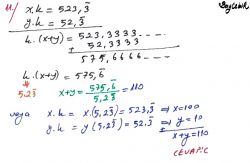 11/ x.k = 523,3̄
y.k = 52,3̄
k.(x+y) = 523,3333....
52,3333....
+
575,6666....
k.(x+y) = 575,6̄
5,23̄ x+y = 575,6̄ / 5,23̄ = 110
veya x.k = x(5,23̄) = 523,3̄ ⇒ x=100
y.k = y(5,23̄) = 52,3̄ ⇒ y=10
+
x+y=110
CEVAPtır